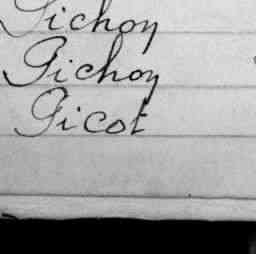 Pichon
Pichon
Picot